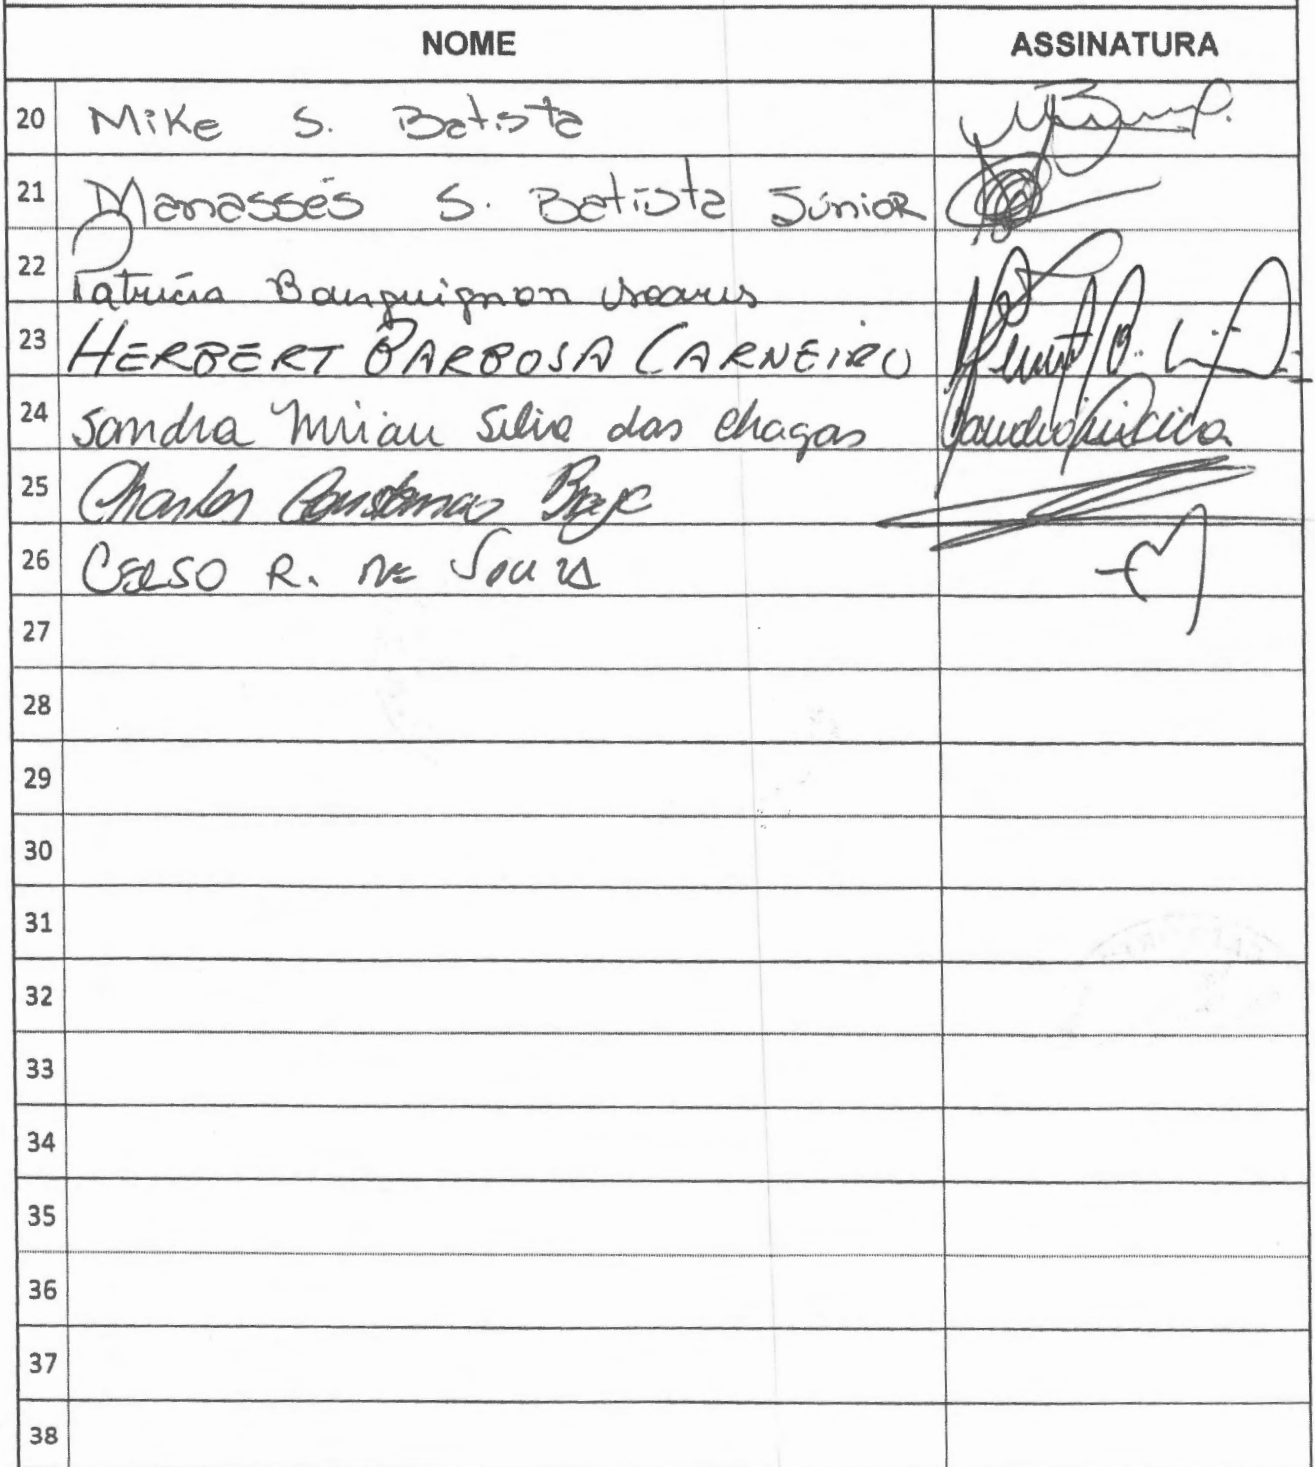 NOME ASSINATURA
20 Mike S. Batista
21 Manassés S. Batista Júnior
22 Patrícia Bourguignon Soares
23 HERBERT BARBOSA CARNEIRO
24 Sandra Mirian Silva das Chagas
25 Charles
26 CELSO R. DE SOUZA
27
28
29
30
31
32
33
34
35
36
37
38